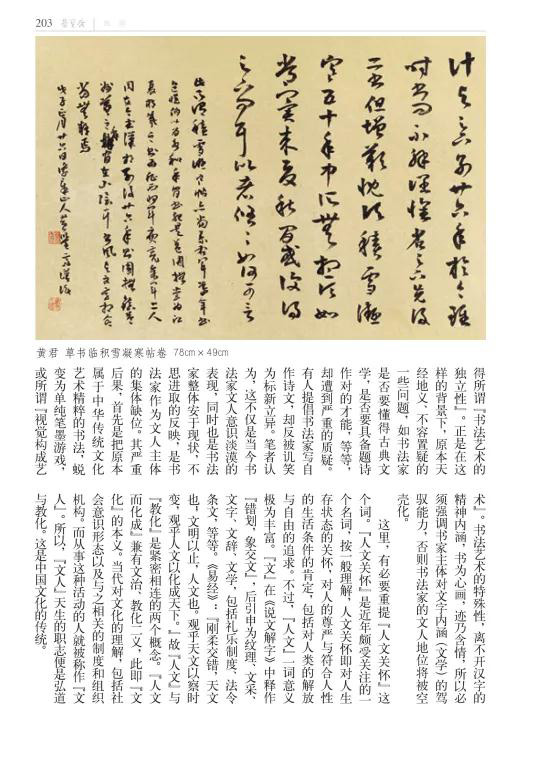 203 荣宝斋
計与足下別廿六年於今雖
时書问不解闊懷省足下先後
二書但增歎慨頃積雪凝
寒五十年中所無想頃如
常冀来夏秋間或復得
足下問耳比者悠悠如何可言
黄君 草书临积雪凝寒帖卷 78cm×49cm
得所谓『书法艺术的
独立性』。正是在这
样的背景下，原本天
经地义、不容置疑的
一些问题，如书法家
是否要懂得古典文
学，是否要具备题诗
作对的才能，等等，
却遭到严重的质疑。
有人提倡书法家写自
作诗文，却反被讥笑
为标新立异。笔者认
为，这不仅是当今书
法家文人意识淡漠的
表现，同时也是书法
家整体安于现状、不
思进取的反映，是书
法家作为文人主体
的集体缺位。其严重
后果，首先是把原本
属于中华传统文化
艺术精粹的书法，蜕
变为单纯笔墨游戏，
或所谓『视觉构成艺
术』。书法艺术的特殊性，离不开汉字的
精神内涵，书为心画，迹乃含情，所以必
须强调书家主体对文字内涵（文学）的驾
驭能力，否则书法家的文人地位将被空
壳化。
这里，有必要重提『人文关怀』这
个词。『人文关怀』是近年颇受关注的一
个名词，按一般理解，人文关怀即对人生
存状态的关怀，对人的尊严与符合人性
的生活条件的肯定，包括对人类的解放
与自由的追求。不过，『人文』一词意义
极为丰富。『文』在《说文解字》中释作
『错划，象交文』，后引申为纹理、文采、
文字、文辞、文学，包括礼乐制度、法令
条文，等等。《易经》：『刚柔交错，天文
也，文明以止，人文也。观乎天文以察时
变，观乎人文以化成天下。』故『人文』与
『教化』是紧密相连的两个概念。『人文
而化成』兼有文治、教化二义，此即『文
化』的本义。当代对文化的理解，包括社
会意识形态以及与之相关的制度和组织
机构。而从事这种活动的人就被称作『文
人』。所以，『文人』天生的职志便是弘道
与教化。这是中国文化的传统。